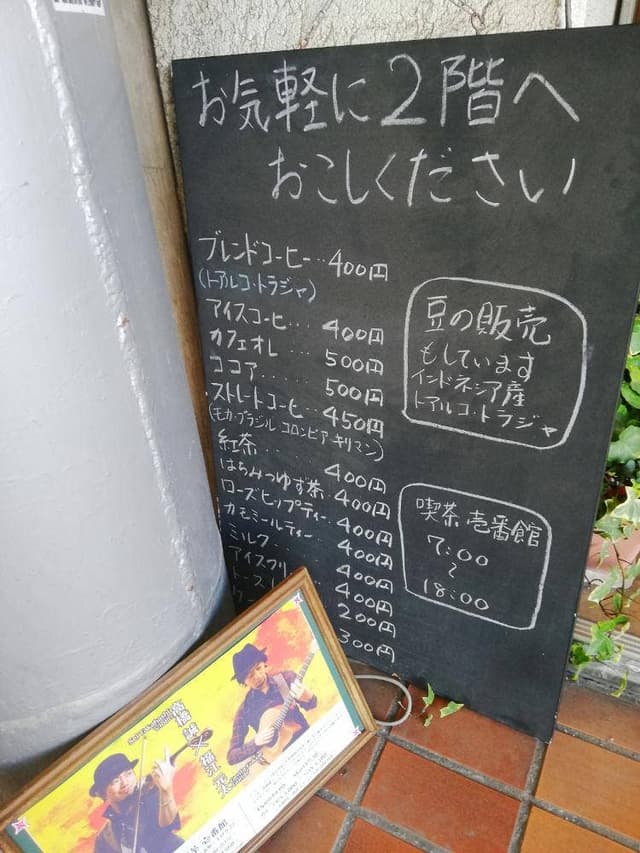 お気軽に2階へ
おこしください
ブレンドコーヒー…400円
(トアルコ・トラジャ)
アイスコーヒ…400円
カフェオレ 500円
ココア……500円
ストレートコーヒ…450円
(モカ・ブラジル コロンビア・キリマン)
紅茶……400円
はちみつゆず茶…400円
ローズヒップティー…400円
カモミールティー…400円
ミルク…400円
アイスクリ 400円
トース 200円
300円
豆の販売
もしています
インドネシア産
トアルコ・トラジャ
喫茶 壱番館
7:00
～
18:00
壱番館